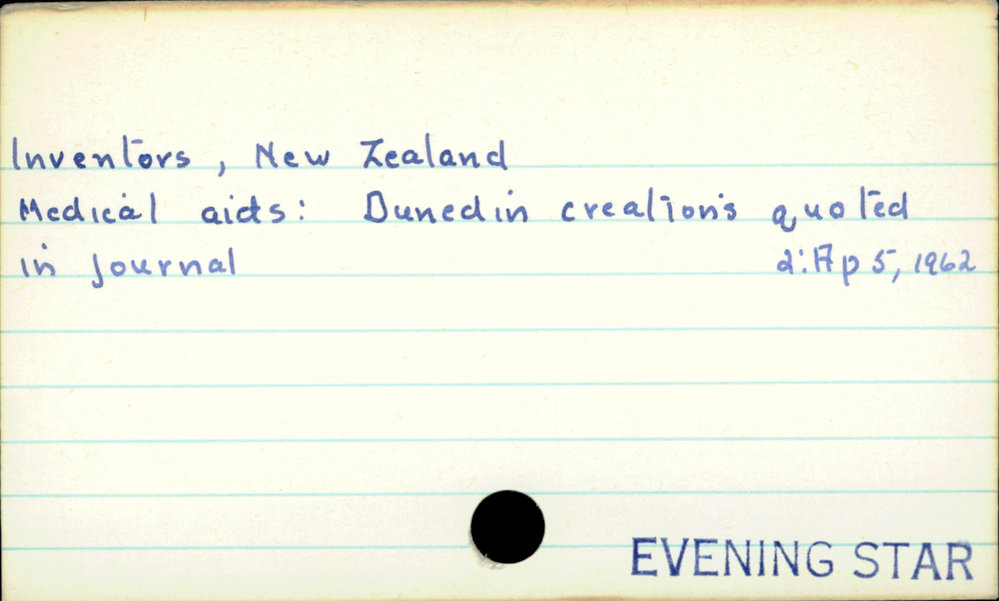 Inventors, New Zealand
Medical aids: Dunedin creations quoted
in journal 2:Ap 5, 1962
EVENING STAR